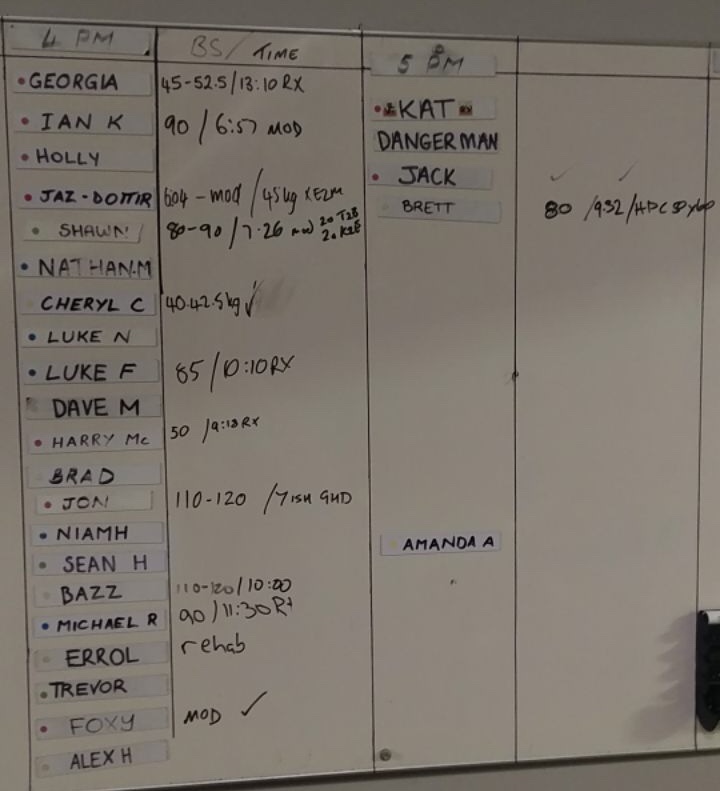 4 PM BS/ TIME
GEORGIA 45-52.5/13:10 RX
IAN K 90 / 6:57 MOD
HOLLY
JAZ-DOTTIR - mod / 45kg
SHAWN 80-90 / 7:26 20 T2B
20 K2E
NATHAN.M
CHERYL C 40.42.5kg ✓
LUKE N
LUKE F 85 / 10:10 RX
DAVE M
HARRY Mc 50 / 9:18 RX
BRAD
JON 110-120 / 7ish GHD
NIAMH
SEAN H
BAZZ 110-120/10:00
MICHAEL R 90 / 11:30
ERROL rehab
TREVOR
FOXY MOD ✓
ALEX H
5 PM
KAT
DANGERMAN
JACK ✓ ✓
BRETT 80 / 9:32 /
AMANDA A